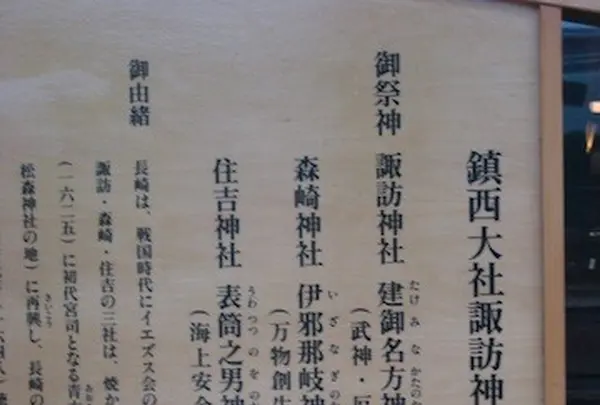 鎮西大社諏訪神
御祭神 諏訪神社 建御名方神
たけ み な かたのか
(武神・厄
森崎神社 伊邪那岐神
い ざ な ぎ の
(万物創生
住吉神社 表筒之男神
うわ つつ の を の
(海上安全
御由緒
長崎は、戦国時代にイエズス会の
諏訪・森崎・住吉の三社は、焼か
(一六二五)に初代宮司となる青木
松森神社の地)に再興し、長崎の
さいこう